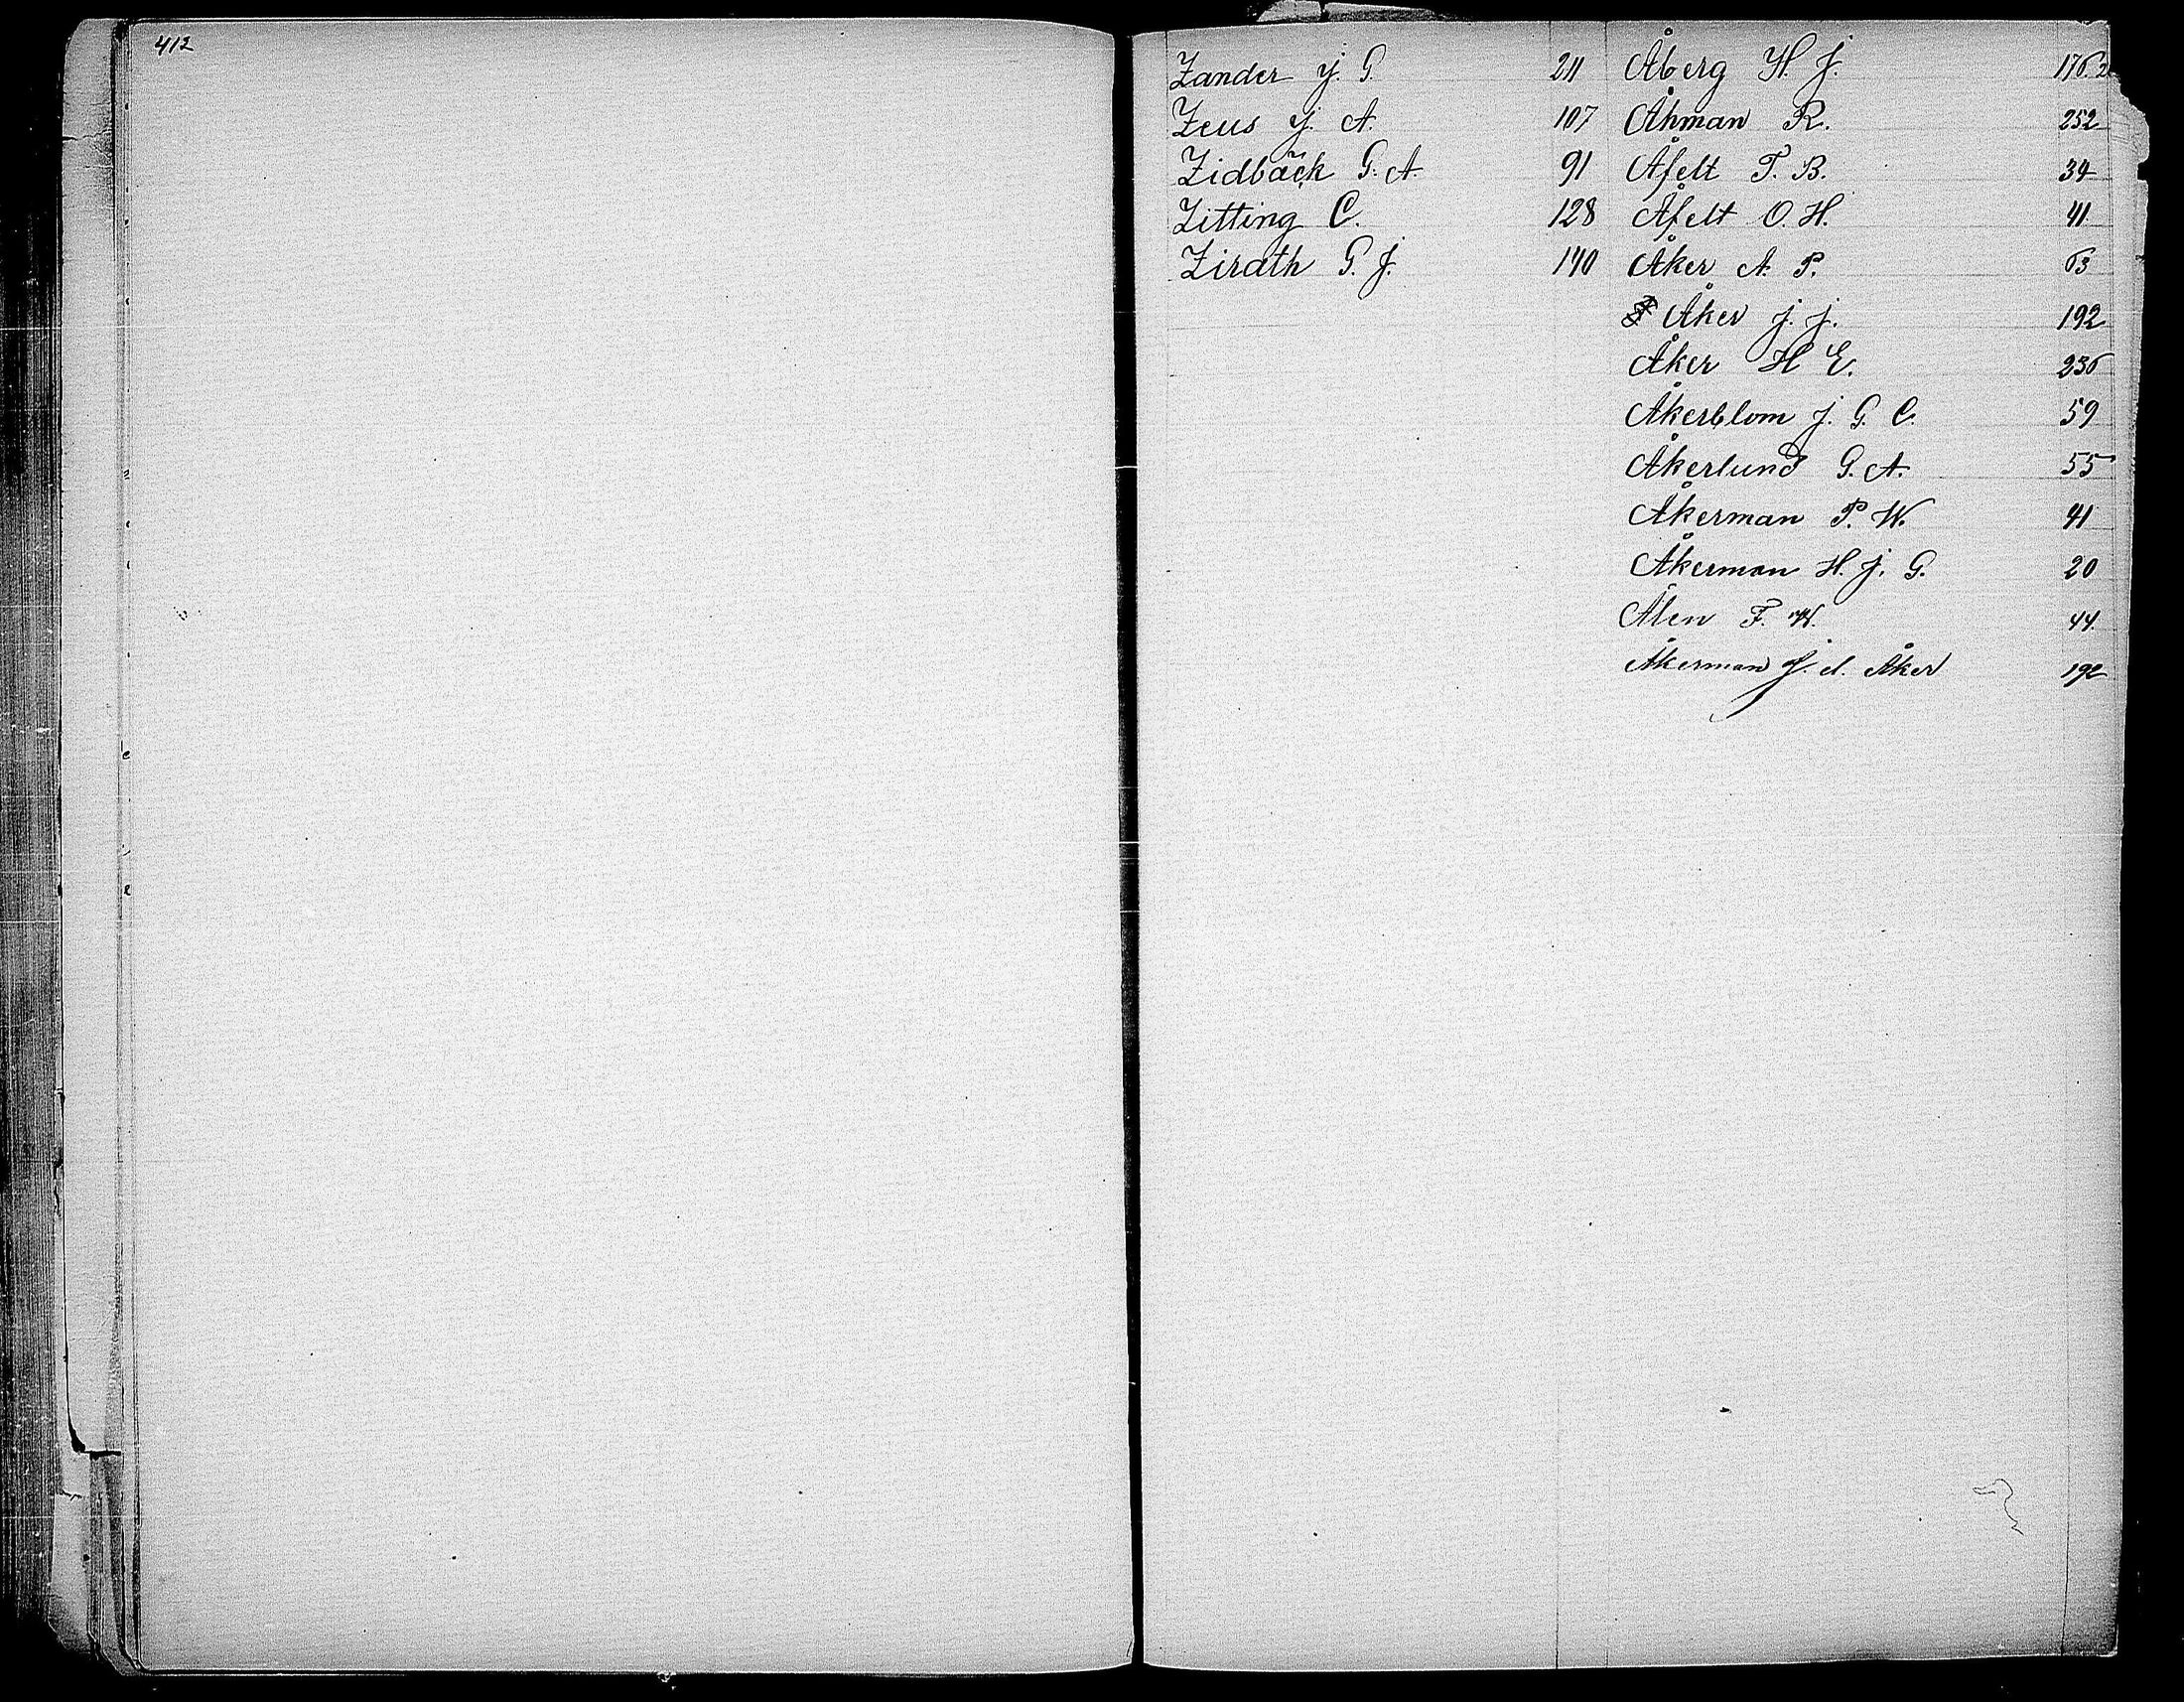 412
Zander J. G. 211
Zeus J. A. 107
Zidbäck G. A. 91
Zitting C. 128
Zirath G. J. 140
Åberg H. J.
Åhman R. 252
Åfelt T. B. 34
Åfelt O. H. 41
Åker A. P. 63
Åker J. J. 192
Åker H E. 236
Åkerblom J. G. C. 59
Åkerlund G. A. 55
Åkerman P. W. 41
Åkerman H. J. G. 20
Ålen F. W. 44
Åkerman J. d. Åker 192